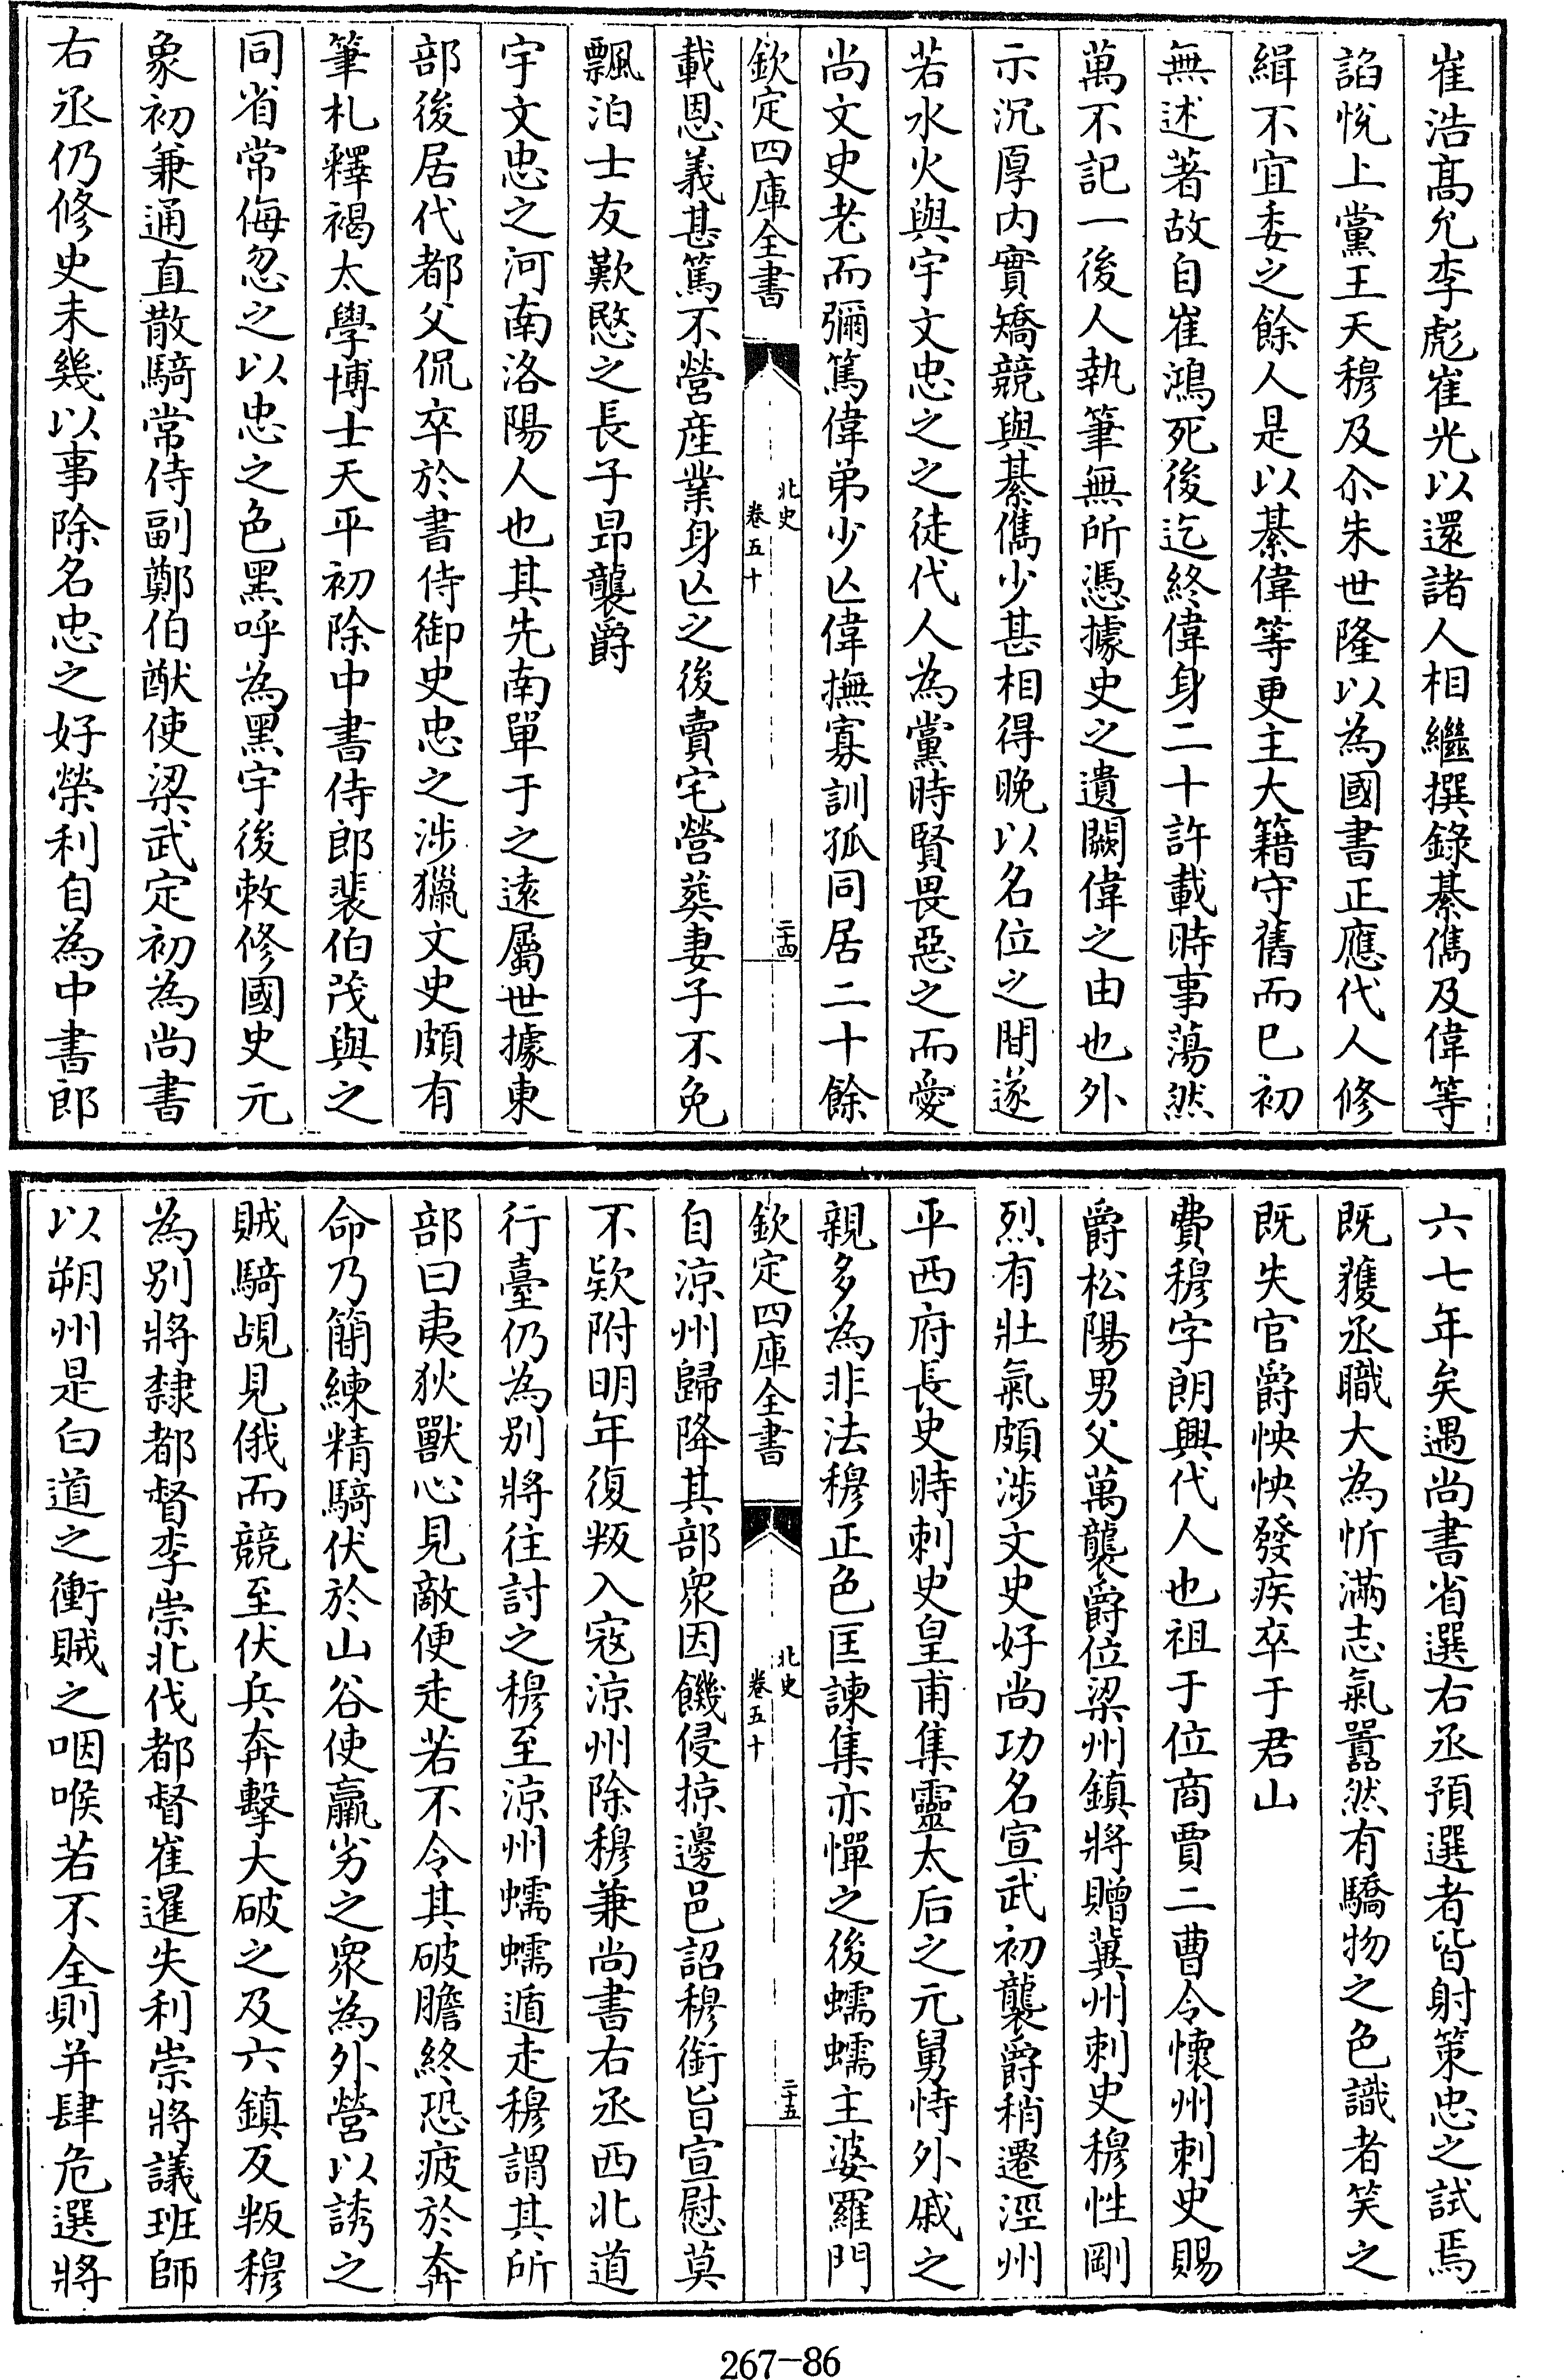 崔浩髙允李彪崔光以還諸人相繼撰錄綦儁及偉等
諂悅上黨王天穆及尒朱世隆以為國書正應代人修
緝不宜委之餘人是以綦偉等更主大籍守舊而已初
無述著故自崔鴻死後迄終偉身二十許載時事蕩然
萬不記一後人執筆無所憑據史之遺闕偉之由也外
示沉厚内實矯競與綦儁少甚相得晚以名位之間遂
若水火與宇文忠之之徒代人為黨時賢畏惡之而愛
尚文史老而彌篤偉弟少亾偉撫寡訓孤同居二十餘
欽定四庫全書
北史
卷五十
二十四
載恩義甚篤不營産業身亾之後賣宅營葬妻子不免
飄泊士友歎愍之長子昻襲爵
宇文忠之河南洛陽人也其先南單于之遠屬世據東
部後居代都父侃卒於書侍御史忠之涉獵文史頗有
筆札釋褐太學博士天平初除中書侍郎裴伯茂與之
同省常侮忽之以忠之色黑呼為黑宇後敕修國史元
象初兼通直散騎常侍副鄭伯猷使梁武定初為尚書
右丞仍修史未幾以事除名忠之好榮利自為中書郎
六七年矣遇尚書省選右丞預選者皆射策忠之試焉
既獲丞職大為忻滿志氣嚻然有驕物之色識者笑之
既失官爵怏怏發疾卒于君山
費穆字朗興代人也祖于位商賈二曹令懷州刺史賜
爵松陽男父萬襲爵位梁州鎮將贈冀州刺史穆性剛
烈有壯氣頗涉文史好尚功名宣武初襲爵稍遷涇州
平西府長史時刺史皇甫集靈太后之元舅恃外戚之
親多為非法穆正色匡諫集亦憚之後蠕蠕主婆羅門
欽定四庫全書
北史
卷五十
二十五
自涼州歸降其部衆因饑侵掠邊邑詔穆銜旨宣慰莫
不欵附明年復叛入宼涼州除穆兼尚書右丞西北道
行臺仍為别將往討之穆至涼州蠕蠕遁走穆謂其所
部曰夷狄獸心見敵便走若不令其破膽終恐疲於奔
命乃簡練精騎伏於山谷使羸劣之衆為外營以誘之
賊騎覘見俄而競至伏兵奔擊大破之及六鎮反叛穆
為别將隸都督李崇北伐都督崔暹失利崇將議班師
以朔州是白道之衝賊之咽喉若不全則并肆危選將
267-86